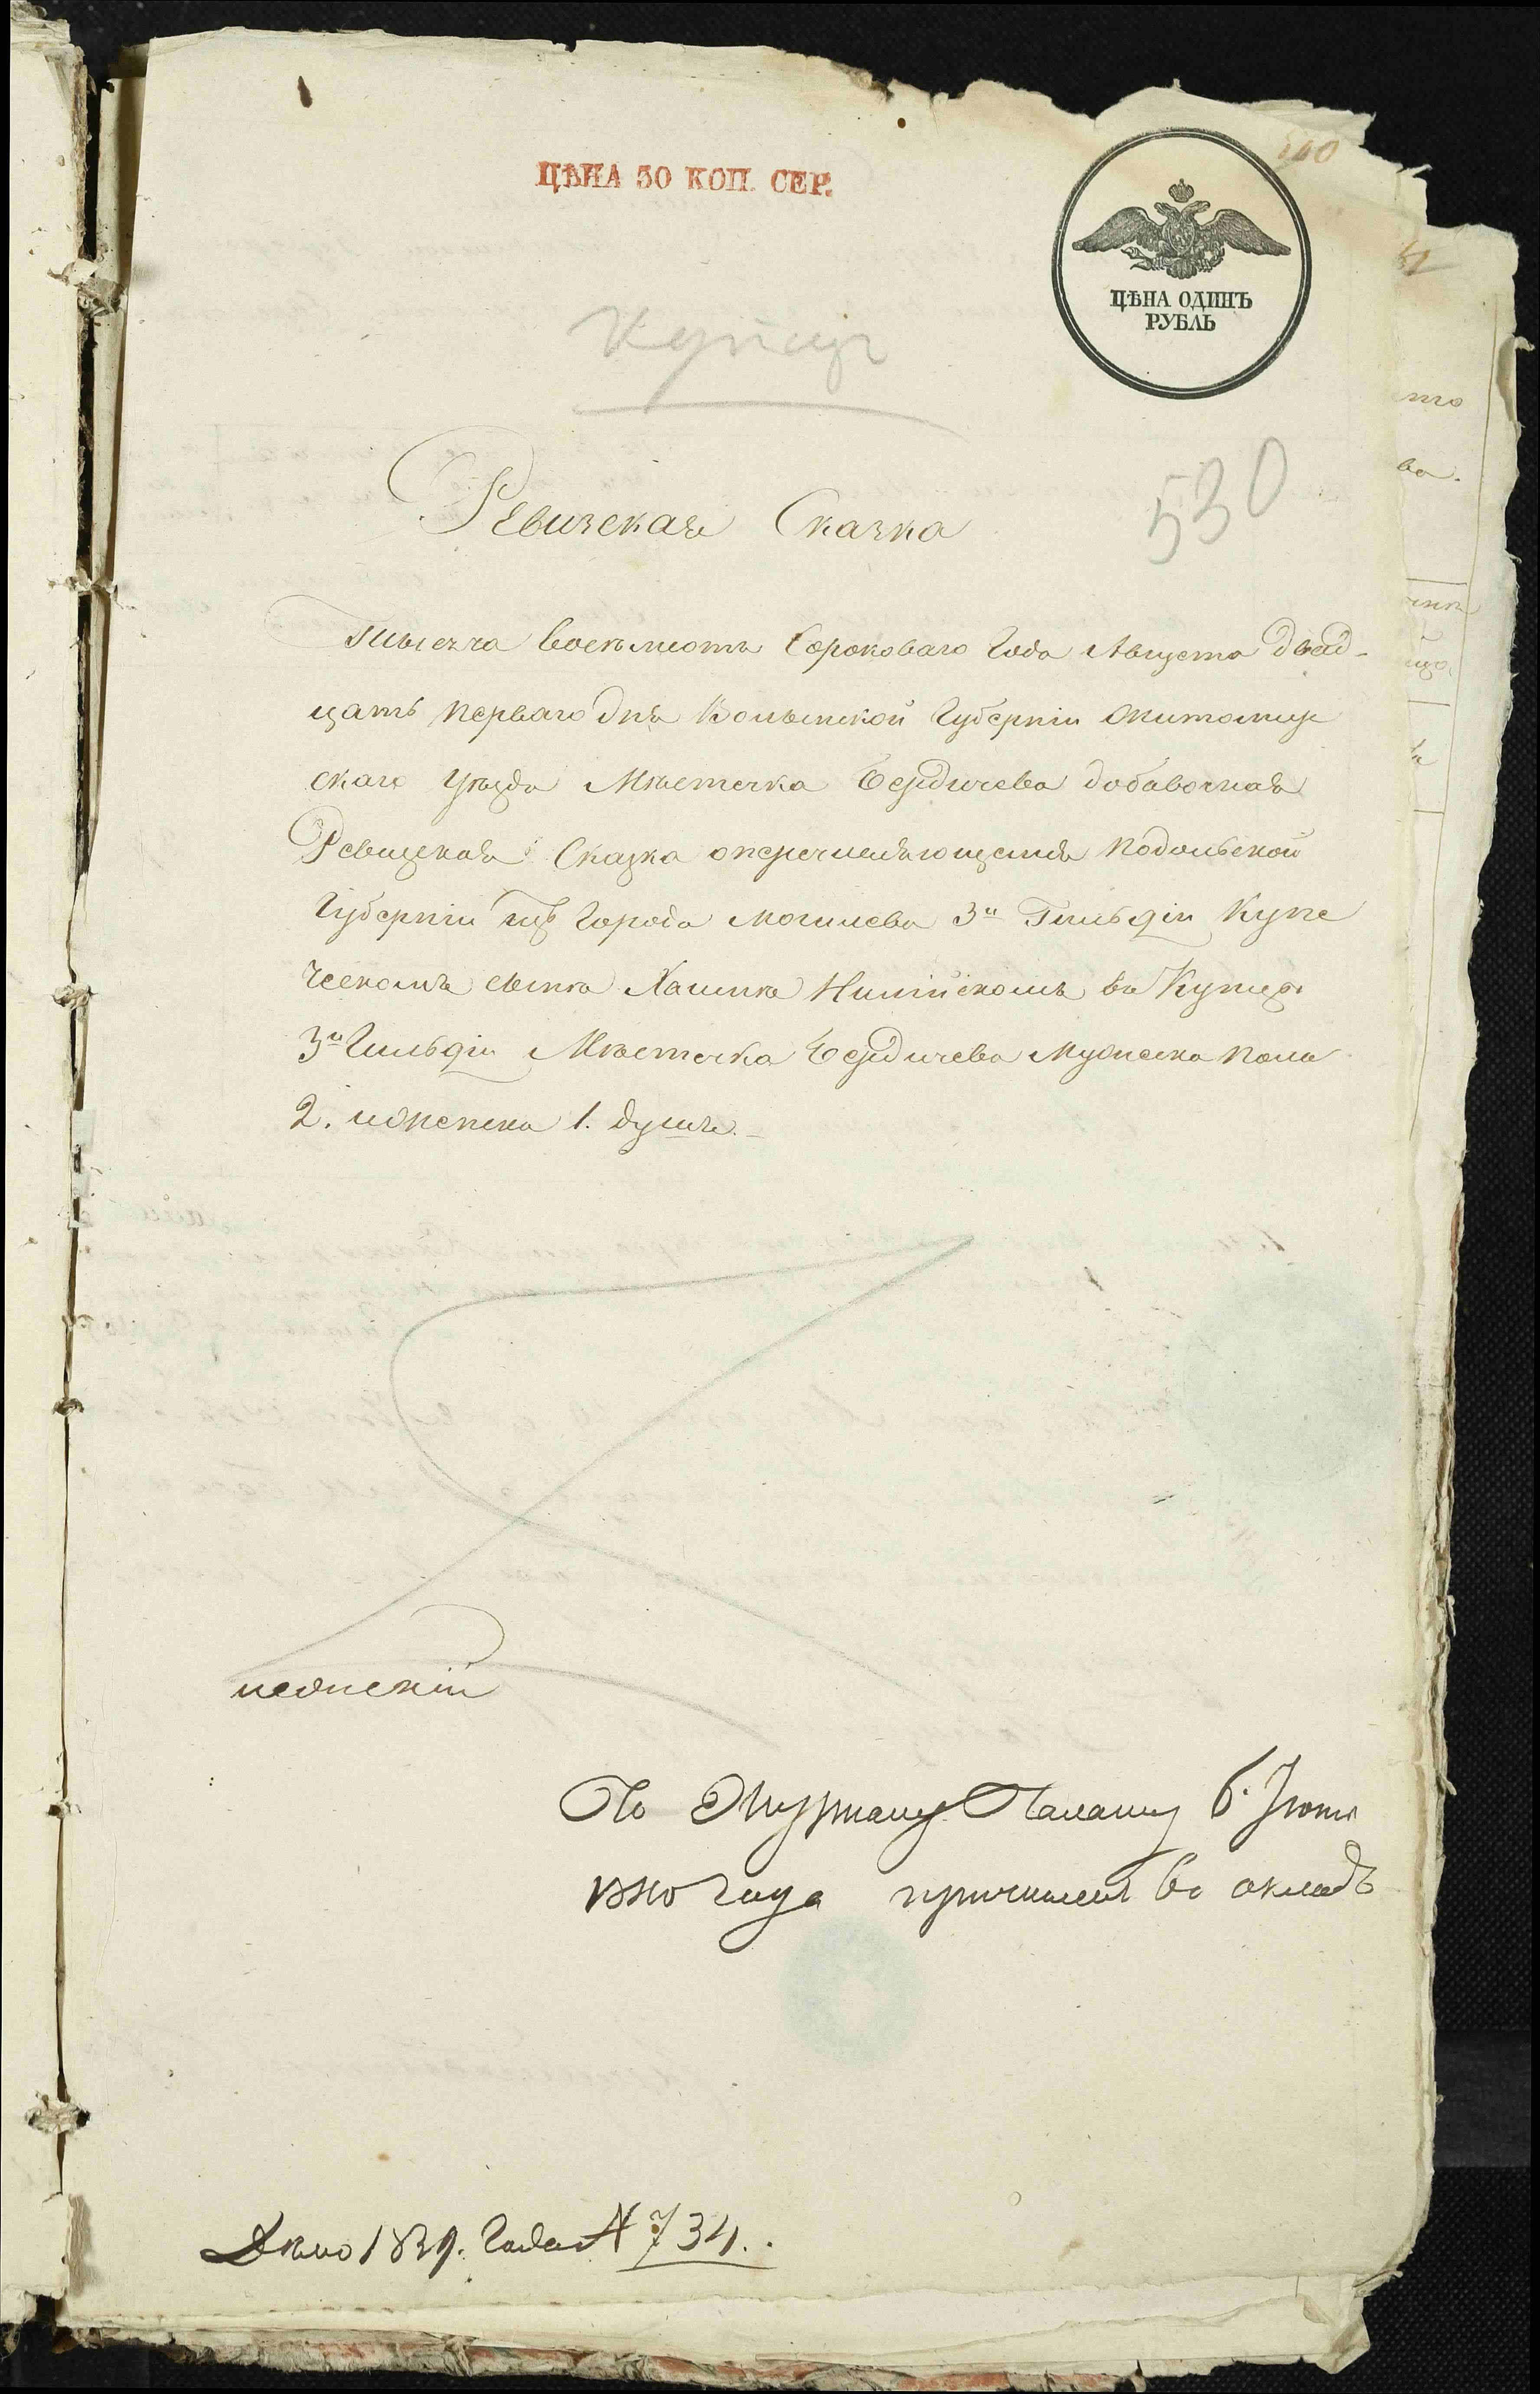 ЦѢНА 30 КОП. СЕР.
ЦѢНА ОДИНЪ
РУБЛЬ
Купцы
530
Ревизская Сказка
Тысяча восемьсотъ Сороковаго Года Августа двад-
цать перваго дня Волынской Губерніи Житомир
скаго уѣзда Мѣстечка Бердичева добавочная
Ревизская Сказка о перечисляющемся Подольской
Губерніи изъ Города Могилева 3й Гильдіи Купе
ческомъ сынѣ Хаимѣ въ Купцы
3й Гильдіи Мѣстечка Бердичева Мужеска пола
2. и женска 1. душѣ.
По Журналу Палаты 6. Іюня
1840 года причисленъ въ окладъ
Дѣло 1839. Года № 734.